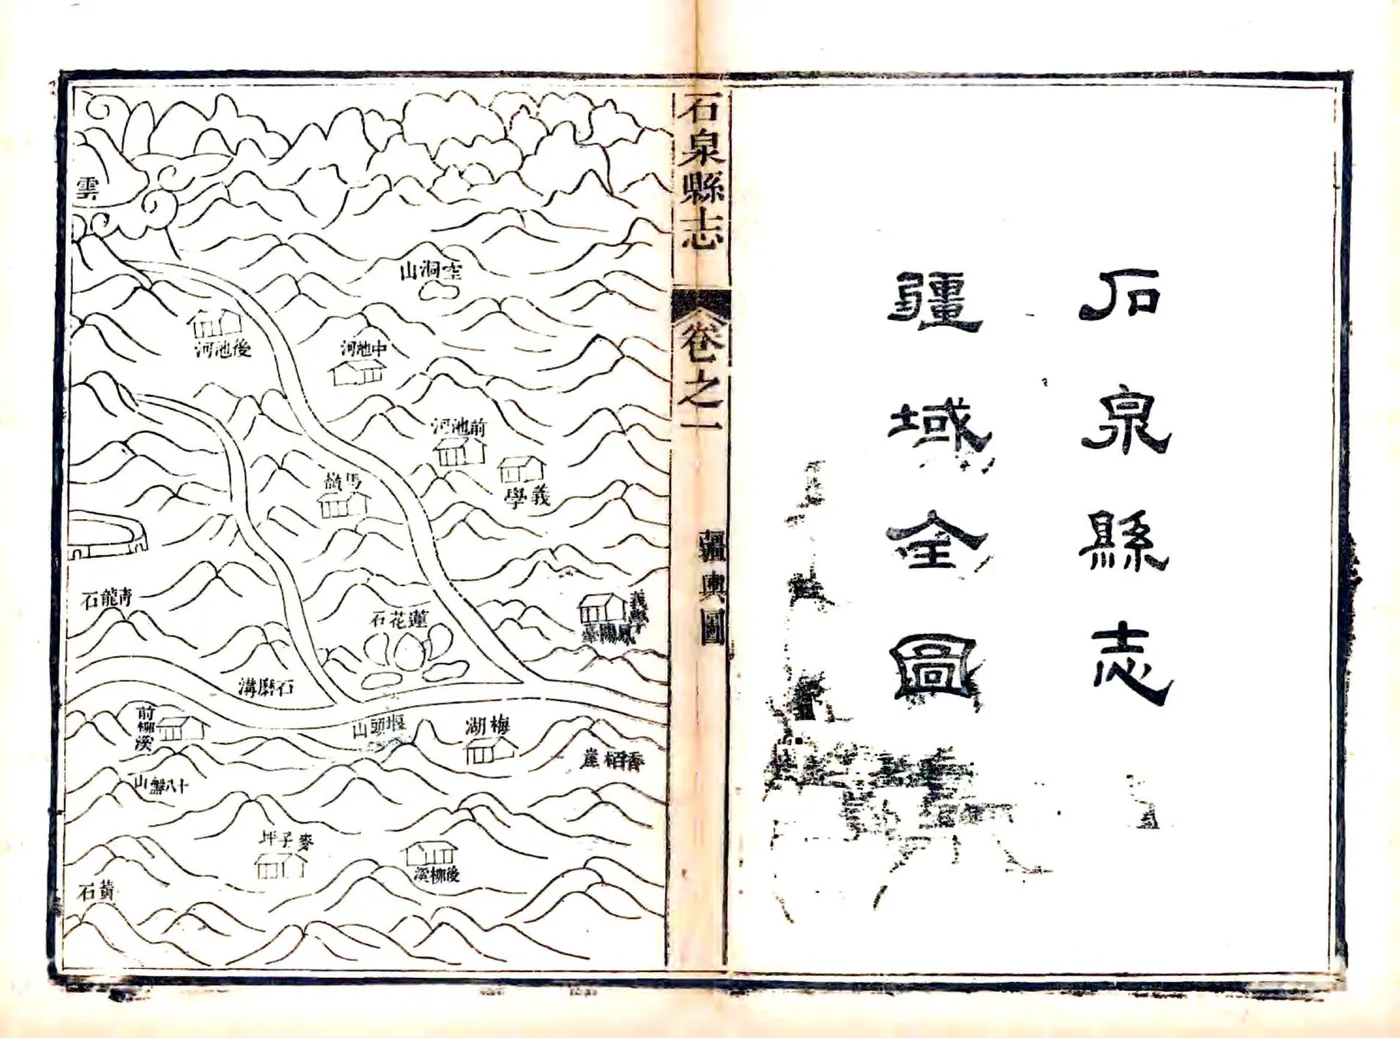 石泉縣志
疆域全圖
石泉縣志
卷之一
疆輿圖
空洞山
中池河
後池河
前池河
義學
馬嶺
義學
鳳陽臺
蓮花石
石磨溝
青龍石
雲
堰頭山
梅湖
香栢崖
前柳溪
十八盤山
麥子坪
後柳溪
黃石